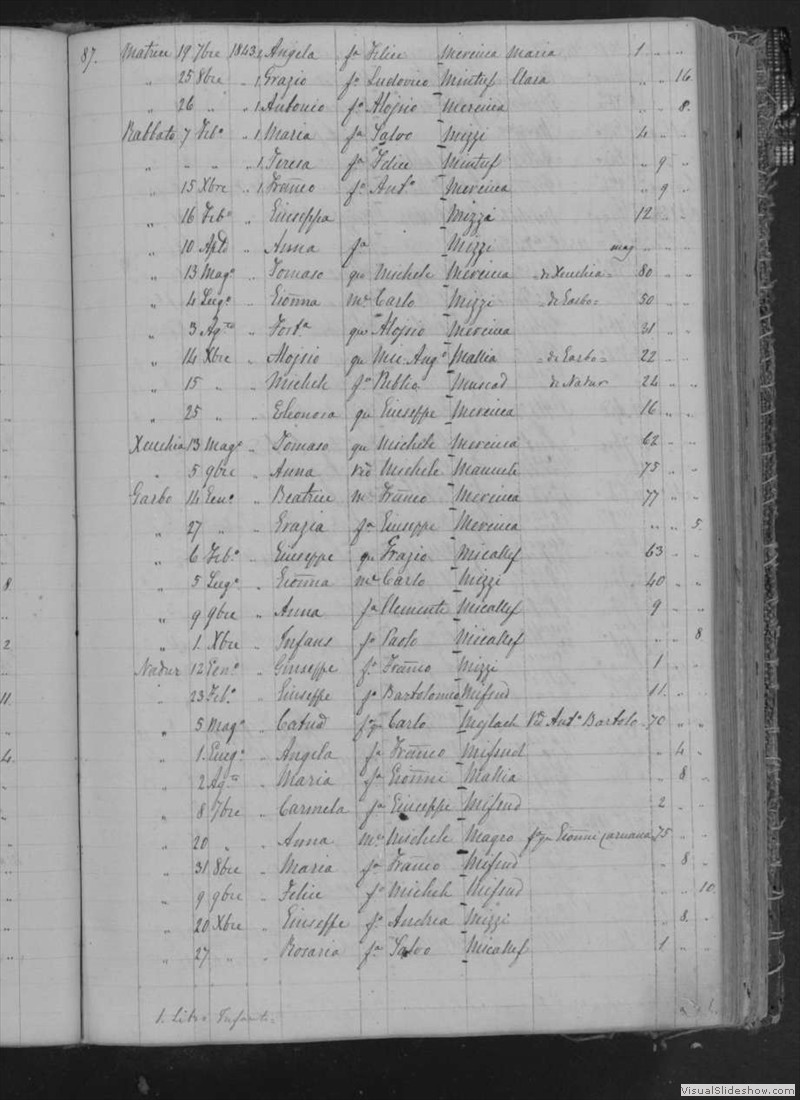 87. Matrice 19 7bre 1843 1. Angela fa Felice Mercieca Maria 1 " "
" 25 8bre " 1. Grazio fo Ludovico Mintuf Clara " " 16
" 26 " " 1. Antonio fo Aloysio Mercieca " " 8.
Rabbato 7 Feb.o " 1. Maria fa Salvo Mizzi 4 " "
" " " " 1. Teresa fa Felice Mintuf " 9 "
" 15 Xbre 1. Franco fo Ant.o Mercieca " 9 "
" 16 Feb.o " Giuseppa Mizzi 12 " "
" 10 Aple " Anna fa Mizzi mag " "
" 13 Mago " Tomaso qm Michele Mercieca = di Xeuchia = 80 " "
" 4 Lugo " Gionna me Carlo Mizzi = di Garbo = 50 " "
" 3 Agto " Forta qm Aloysio Mercieca 31 " "
" 14 Xbre " Aloysio qm Mic. Ango Mallia = di Garbo = 22 " "
" 15 " " Michele fo Publio Muscad di Nadur 24 " "
" 25 " " Eleonora qm Giuseppe Mercieca 16 " "
Xeuchia 13 Mago " Tomaso qm Michele Mercieca 62 " "
" 5 9bre " Anna va Michele Mamente 75 " "
Garbo 14 Geno " Beatrice me Franco Mercieca 77 " "
" 27 " " Grazia fa Giuseppe Mercieca " " 5.
" 6 Feb.o " Giuseppe qm Grazio Micallef 63 " "
" 5 Lugo " Gionna me Carlo Mizzi 40 " "
" 9 9bre " Anna fa Clemente Micallef 9 " "
" 1. Xbre " Infans fo Paolo Micallef " " 8
Nadur 12 Geno " Giuseppe fo Franco Mizzi 1 " "
" 23 Feb.o " Giuseppe fo Bartolomeo Mifsud 11. " "
" 5 Mago " Catad fqm Carlo Meylach Va Anto Bartolo 70 " "
" 1. Giugo " Angela fa Franco Mifsud " 4 "
" 2 Agto " Maria fa Gionni Mallia " 8 "
" 8 7bre " Carmela fa Giuseppe Mifsud 2 " "
" 20 " " Anna me Michele Magro fqm Gionni Caruana 75 " "
" 31 8bre " Maria fa Franco Mifsud " 8 "
" 9 9bre " Felice fo Michele Mifsud " " 10.
" 20 Xbre " Giuseppe fo Andrea Mizzi " 8. "
" 27 " " Rosaria fa Salvo Micallef 1 " "
1. Libro Infanti
8
2
11.
4.
VisualSlideshow.com